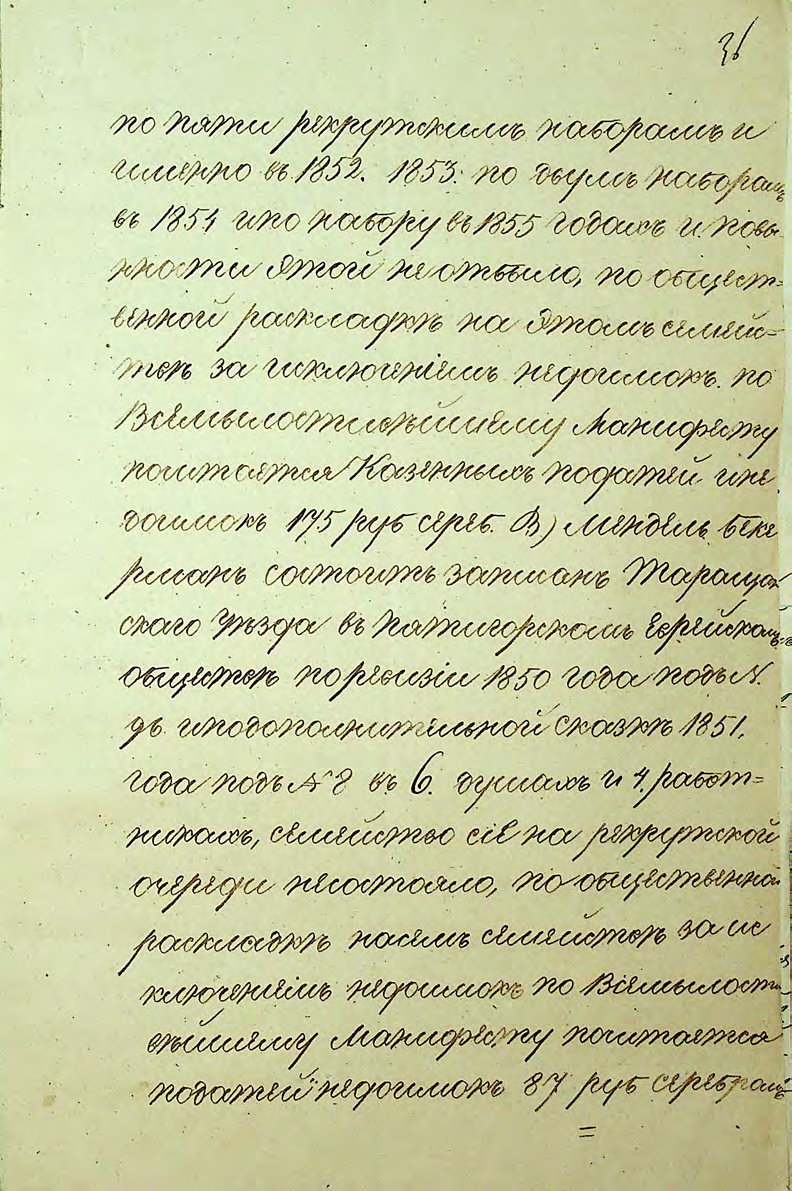 36
по пяти рекрутскимъ наборамъ и
именно въ 1852. 1853. по двумъ наборамъ
въ 1854 и по набору въ 1855 годахъ и пови-
нности этой не отбыло, по общест-
венной раскладкѣ на этомъ семей-
ствѣ за исключеніемъ недоимокъ по
Всемылостивѣйшему Манифесту
почитается Казенныхъ податей и не
доимокъ 175 руб сереб. В) Мендель Беке
рманъ состоитъ записанъ Таращан
скаго Уѣзда въ Пятигорскомъ Еврейскомъ
обществѣ по ревизіи 1850 года подъ N.
и по дополнительной сказкѣ 1851.
года подъ N 8 въ 6. душахъ и 4. работ-
никахъ, семейство сіе на рекрутской
очереди несостояло, по общественной
раскладкѣ насемъ семействѣ за ис
ключеніемъ недоимокъ по Всемылости
вѣйшему Манифесту почитается
податей недоимокъ 87 руб серебромъ
=